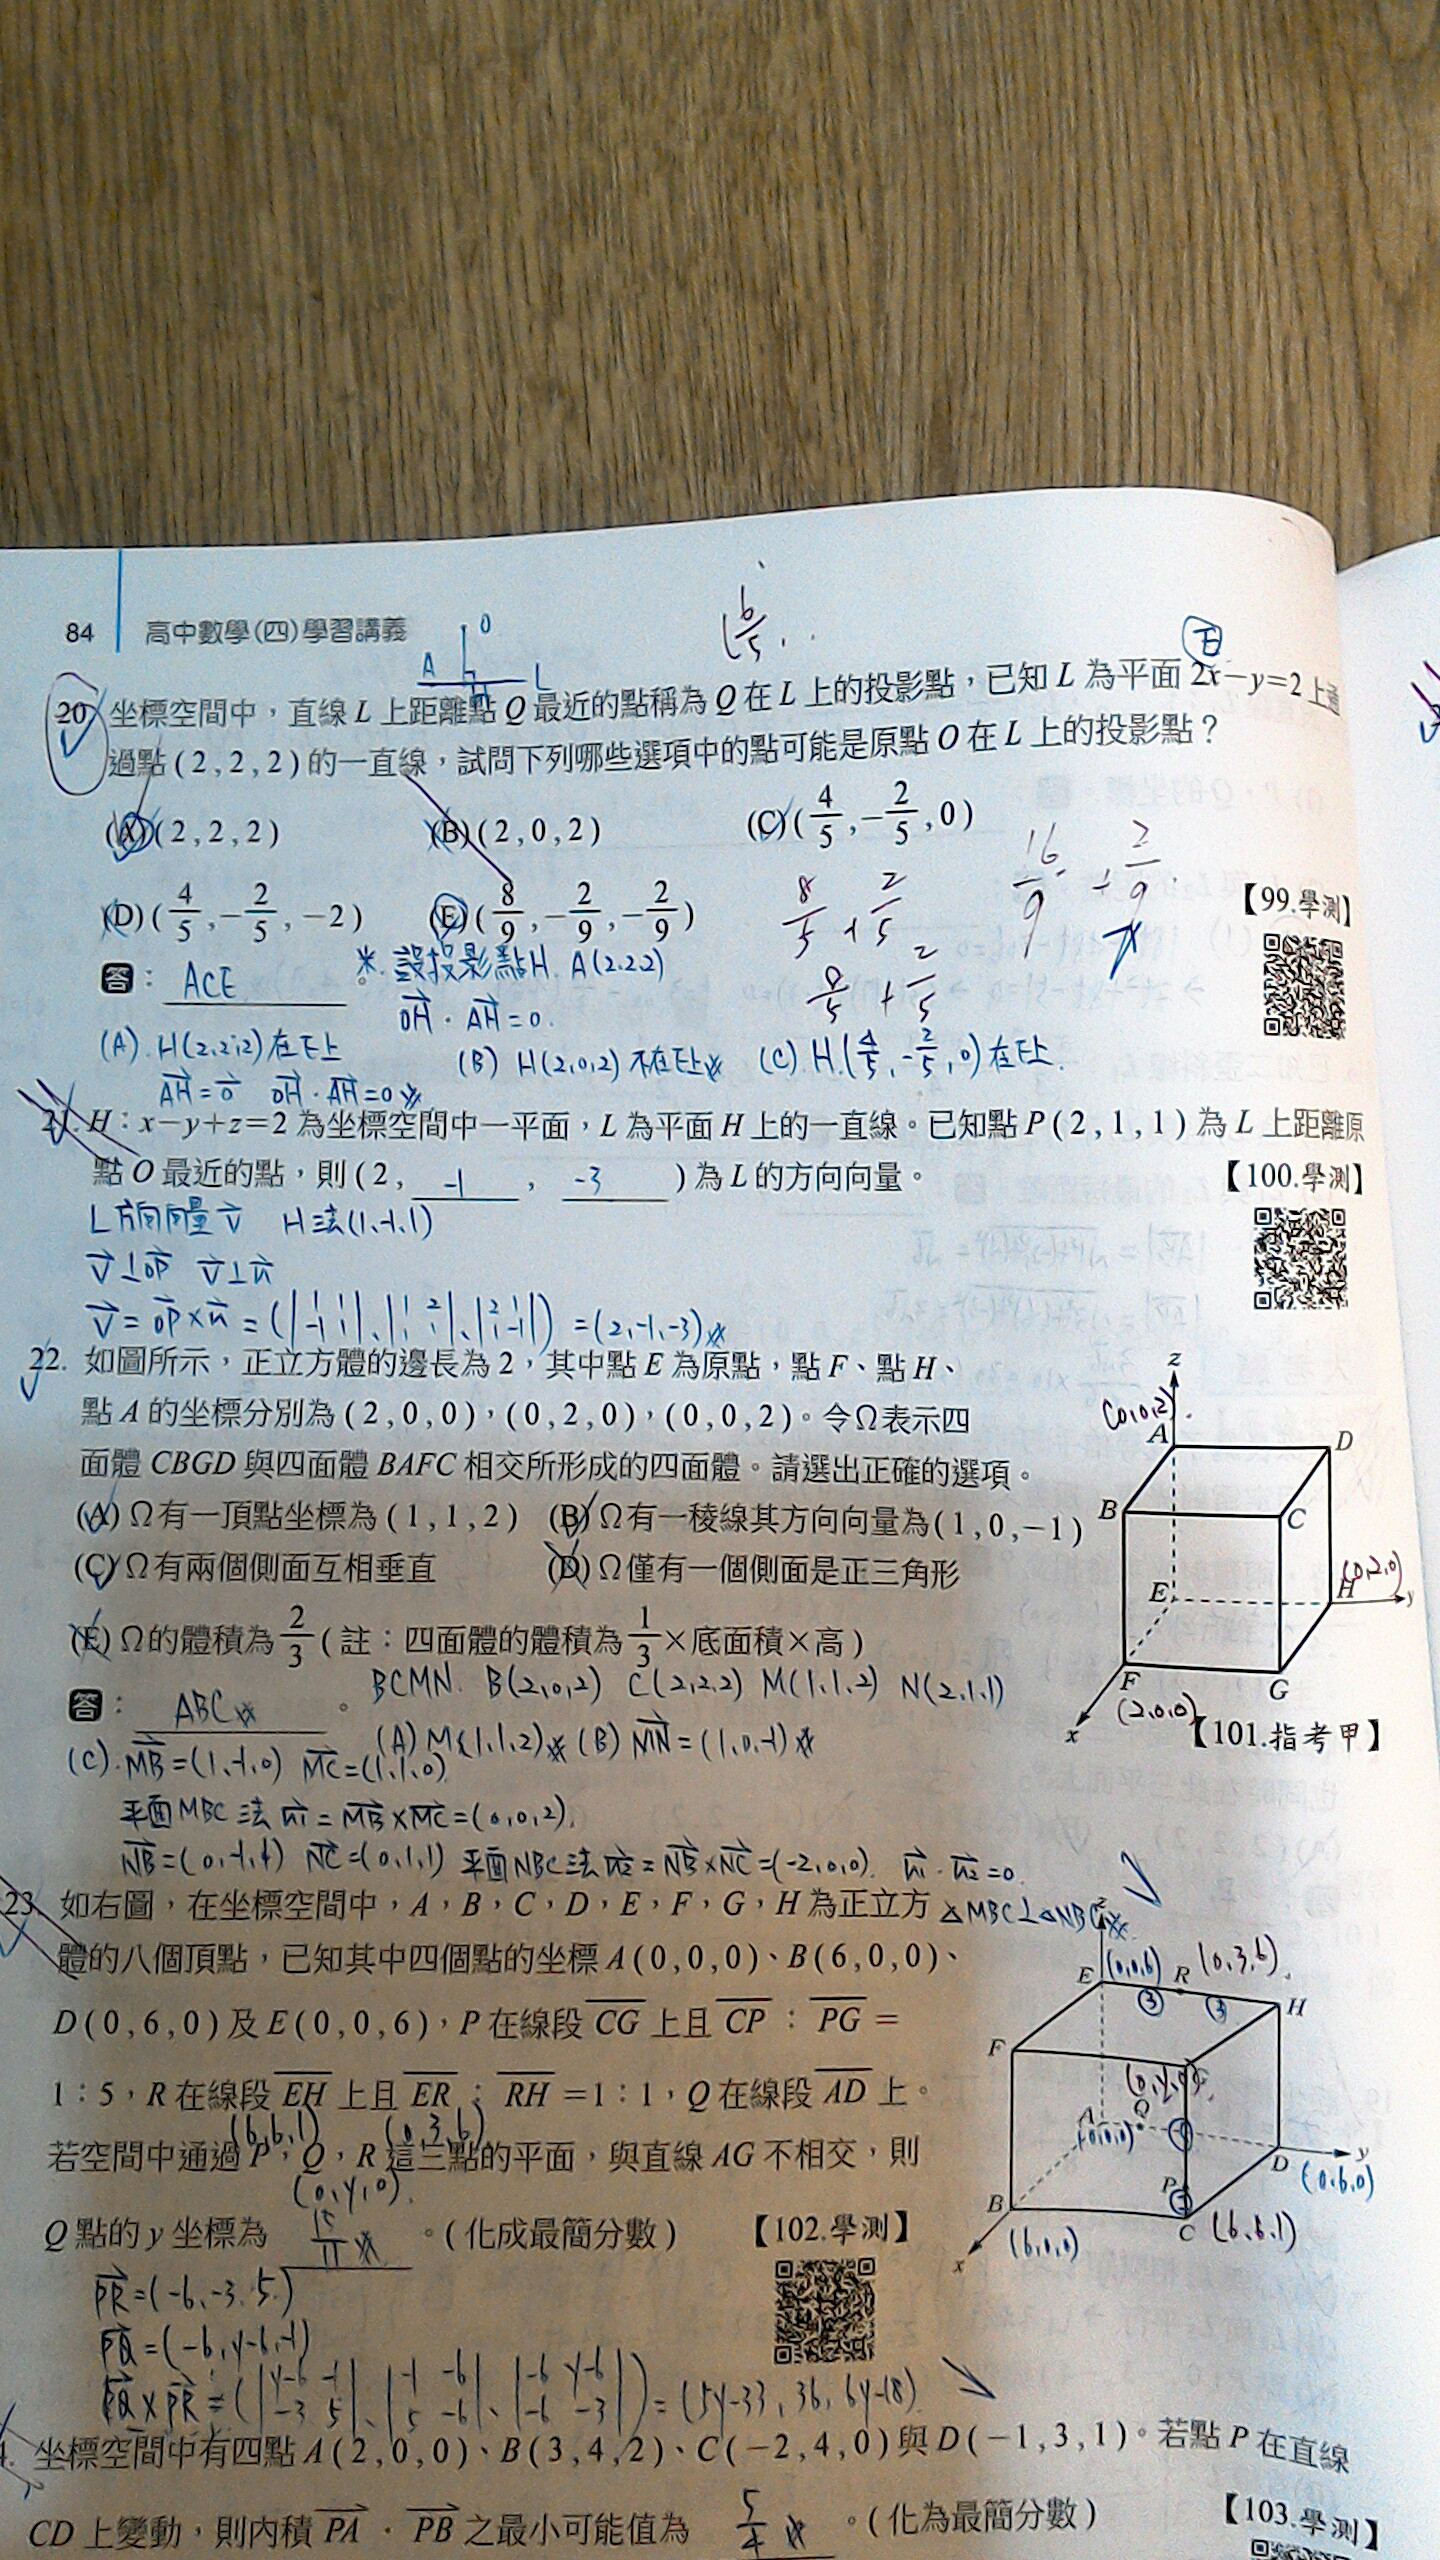 84 高中數學(四)學習講義
20. 坐標空間中，直線 L 上距離點 Q 最近的點稱為 Q 在 L 上的投影點，已知 L 為平面 2x−y=2 上通
過點(2,2,2)的一直線，試問下列哪些選項中的點可能是原點 O 在 L 上的投影點？
(A)(2,2,2) (B)(2,0,2) (C)(4/5,−2/5,0)
(D)(4/5,−2/5,−2) (E)(8/9,−2/9,−2/9) 【99.學測】
8/5+2/5 16/9+2/9
8/5+2/5
答：ACE。
*.設投影點H. A(2.2.2)
OH·AH=0.
(A).H(2,2,2)在E上 (B) H(2,0,2)不在E上 (C).H.(4/5,-2/5,0)在E上.
AH=0 OH·AH=0
21. H：x−y+z=2 為坐標空間中一平面，L 為平面 H 上的一直線。已知點 P(2,1,1)為 L 上距離原
點 O 最近的點，則(2, -1, -3)為 L 的方向向量。 【100.學測】
L方向向量v H法(1,-1,1)
v⊥OP v⊥n
=(2,-1,-3)
22. 如圖所示，正立方體的邊長為 2，其中點 E 為原點，點 F、點 H、
點 A 的坐標分別為(2,0,0)，(0,2,0)，(0,0,2)。令Ω表示四
面體 CBGD 與四面體 BAFC 相交所形成的四面體。請選出正確的選項。
(A)Ω有一頂點坐標為(1,1,2) (B)Ω有一稜線其方向向量為(1,0,−1)
(C)Ω有兩個側面互相垂直 (D)Ω僅有一個側面是正三角形
(E)Ω的體積為2/3(註：四面體的體積為1/3×底面積×高)
z
(0,0,2)
A D
B C
E H (0,2,0) y
F G
(2,0,0)
x
【101.指考甲】
答：ABC。
BCMN. B(2,0,2) C(2,2,2) M(1,1,2) N(2,1,1)
(A) M(1,1,2) (B) MN=(1,0,-1)
(C).MB=(1,-1,0) MC=(1,1,0)
平面MBC法n1=MB×MC=(0,0,2).
NB=(0,-1,1) NC=(0,1,1) 平面NBC法n2=NB×NC=(-2,0,0). n1·n2=0
△MBC⊥△NBC
23. 如右圖，在坐標空間中，A，B，C，D，E，F，G，H 為正立方
體的八個頂點，已知其中四個點的坐標 A(0,0,0)、B(6,0,0)、
D(0,6,0)及 E(0,0,6)，P 在線段 CG 上且 CP：PG =
1：5，R 在線段 EH 上且 ER：RH =1：1，Q 在線段 AD 上。
(6,6,1) (0,3,6)
若空間中通過 P，Q，R 這三點的平面，與直線 AG 不相交，則
(0,y,0)
Q 點的 y 坐標為 15/11。(化成最簡分數) 【102.學測】
E (0,0,6) R (0,3,6)
③ ③ H
F
A (0,0,0) Q
D y
(0,6,0)
P
B C (6,6,1)
(6,0,0)
x
PR=(-6,-3,5)
PQ=(-6,y-6,-1)
PQ×PR=(|y-6 -1|、|-1 -6|、|-6 y-6|)=(5y-33,36,6y-18)
|-3 5| |5 -6| |-6 -3|
坐標空間中有四點 A(2,0,0)、B(3,4,2)、C(−2,4,0)與 D(−1,3,1)。若點 P 在直線
CD 上變動，則內積 PA · PB 之最小可能值為 5/4。(化為最簡分數) 【103.學測】